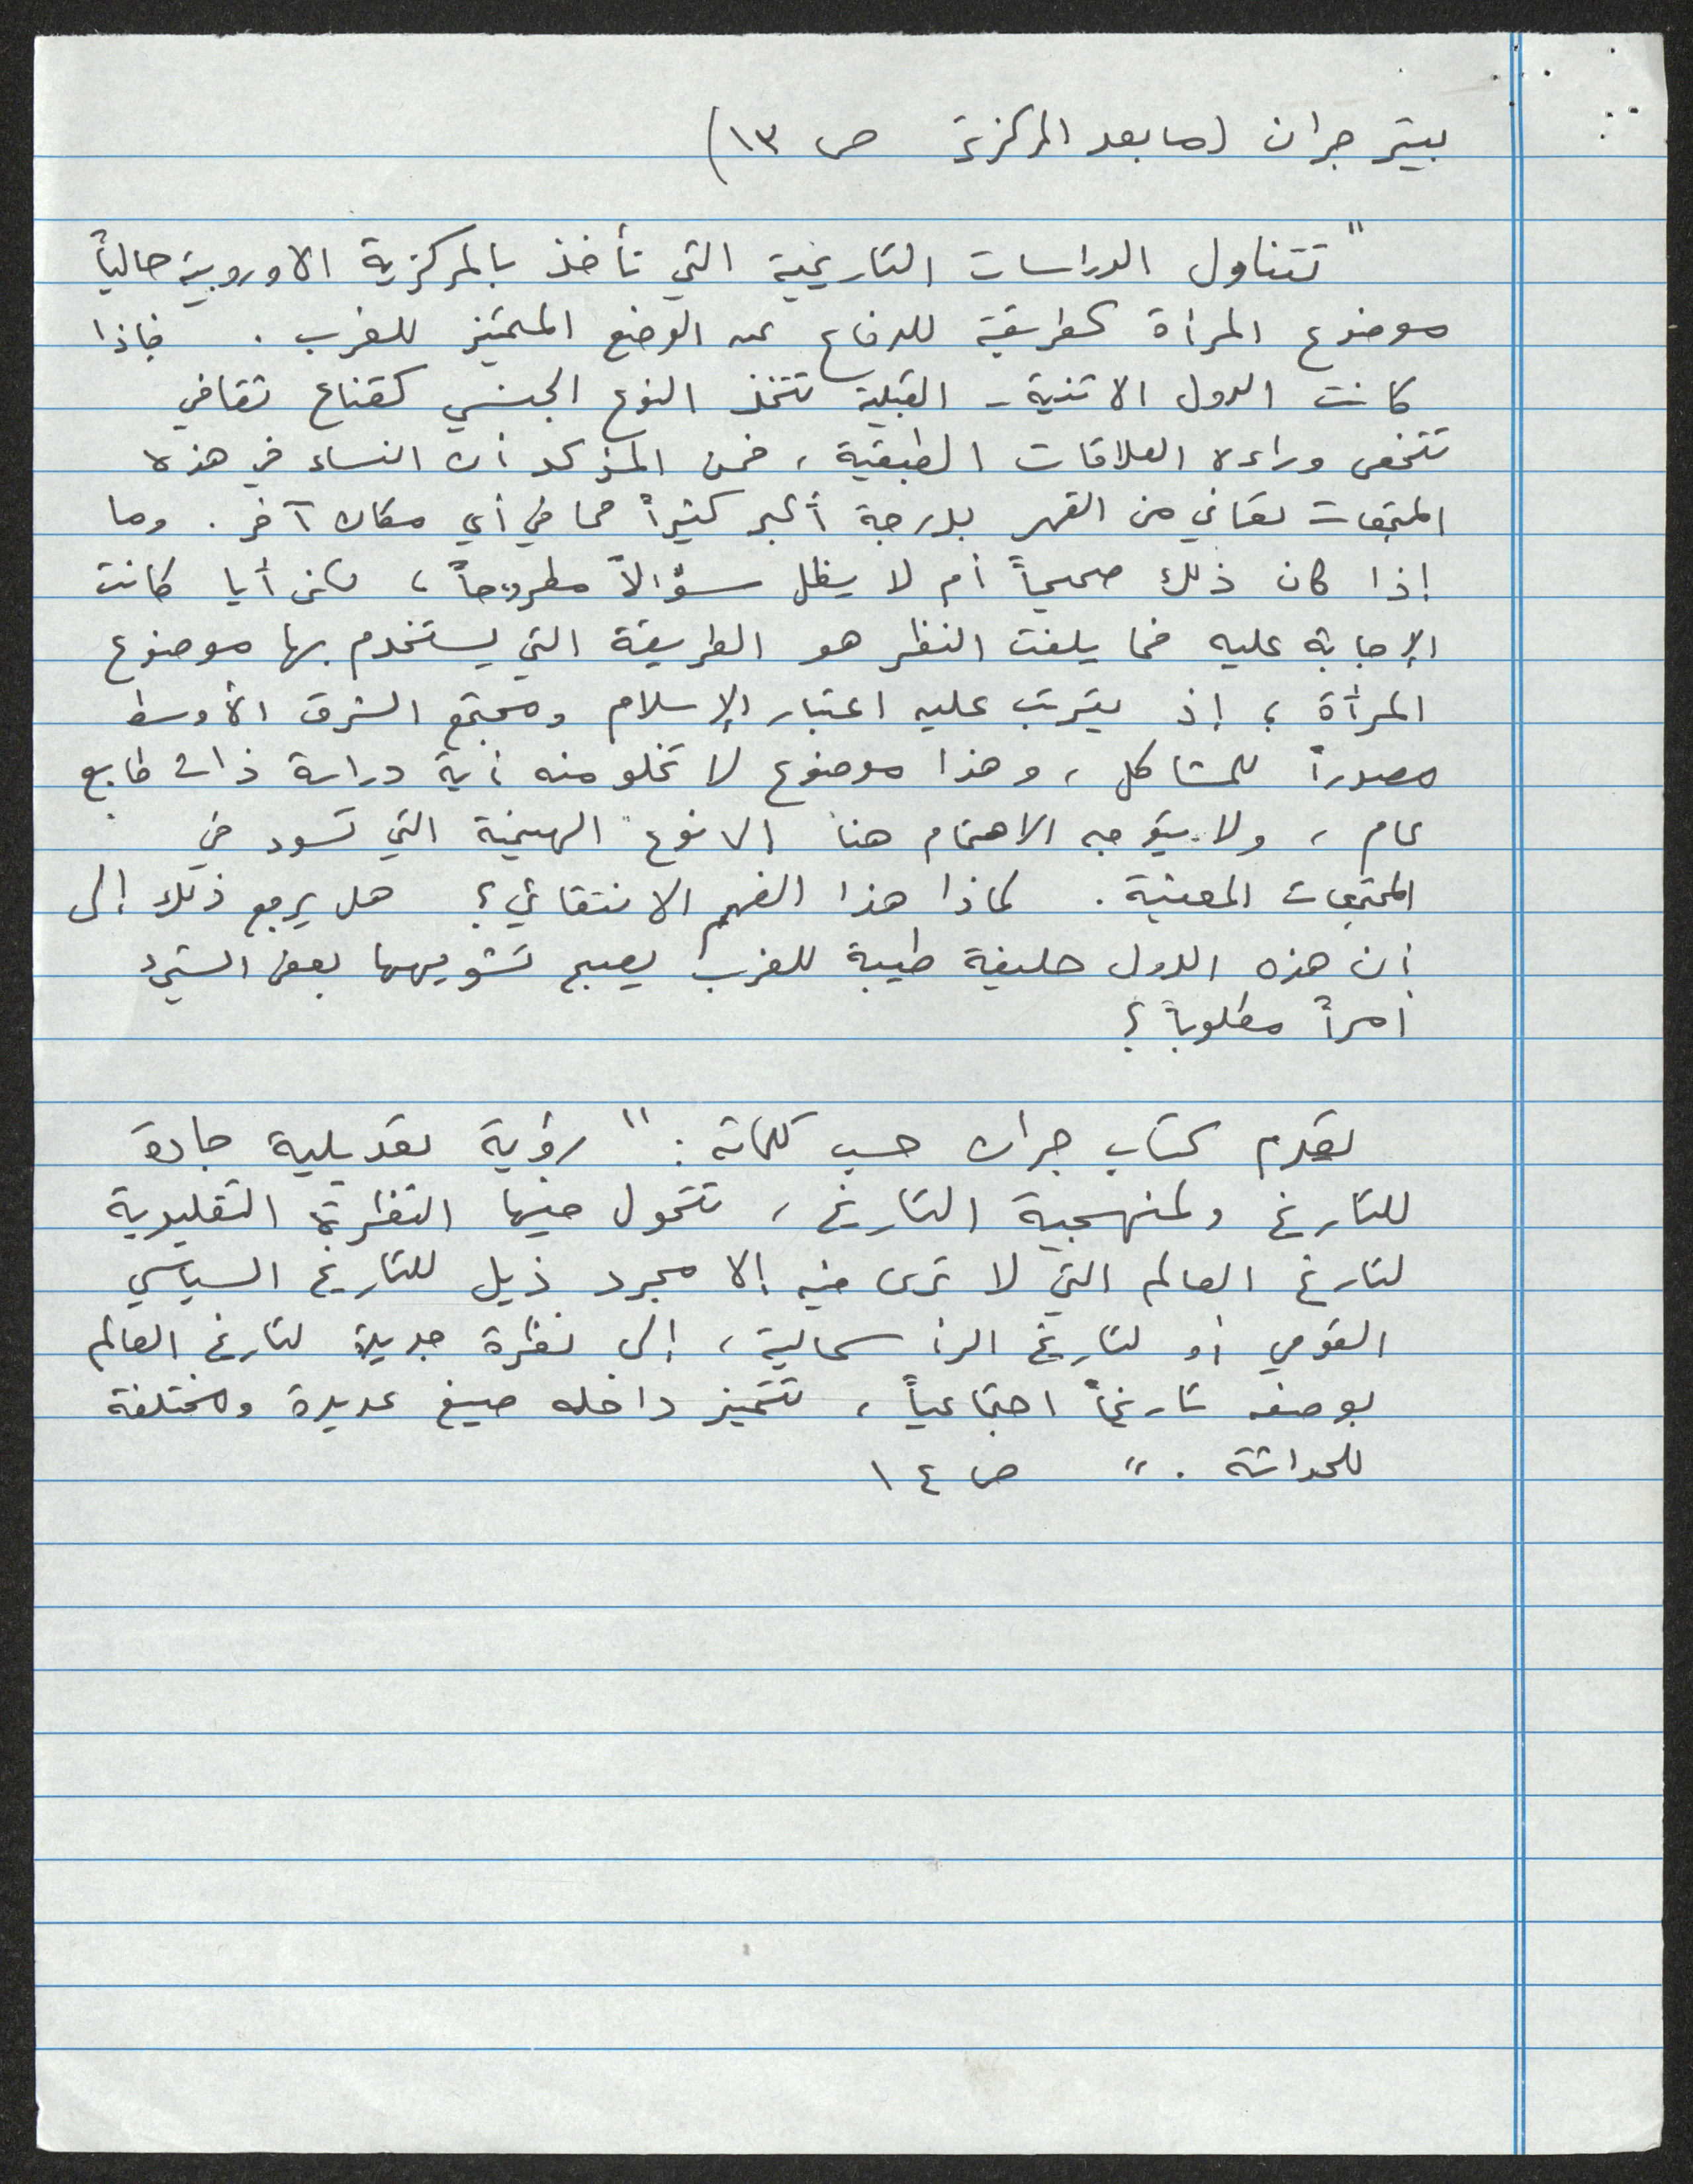 بيتر جران (ما بعد المركزية ص ١٣)
"تتناول الدراسات التاريخية التي تأخذ بالمركزية الاوروبية حالياً
موضوع المرأة كطريقة للدفاع عن الوضع المتميز للغرب . فإذا
كانت الدول الاثنية - القبلية تتخذ النوع الجنسي كقناع ثقافي
تتخفى وراءه العلاقات الطبقية ، فمن المؤكد أن النساء في هذه
المجتمعات تعاني من القهر بدرجة أكبر كثيراً مما في أي مكان آخر . وما
إذا كان ذلك صحيحاً أم لا يظل سؤالاً مطروحاً ، لكن أيا كانت
الإجابة عليه فما يلفت النظر هو الطريقة التي يستخدم بها موضوع
المرأة ؛ إذ يترتب عليه اعتبار الإسلام ومجتمع الشرق الأوسط
مصدراً للمشاكل ، وهذا موضوع لا تخلو منه أية دراسة ذات طابع
عام ، ولا يتوجه الاهتمام هنا إلا نوع الهيمنة التي تسود في
المجتمعات المعنية . لماذا هذا الفهم الانتقائي ؟ هل يرجع ذلك إلى
أن هذه الدول حليفة طيبة للغرب يصبح تشويهها بعض الشيء
أمراً مطلوباً ؟
يقدم كتاب جران حسب كلماته : " رؤية تعديلية جادة
للتاريخ ولمنهجية التاريخ ، تتحول فيها النظرة التقليدية
لتاريخ العالم التي لا ترى فيه إلا مجرد ذيل للتاريخ السياسي
القومي أو لتاريخ الرأسمالية ، إلى نظرة جديدة لتاريخ العالم
بوصفه تاريخاً اجتماعياً ، تتميز داخله صيغ عديدة ومختلفة
للحداثة . " ص ١٤